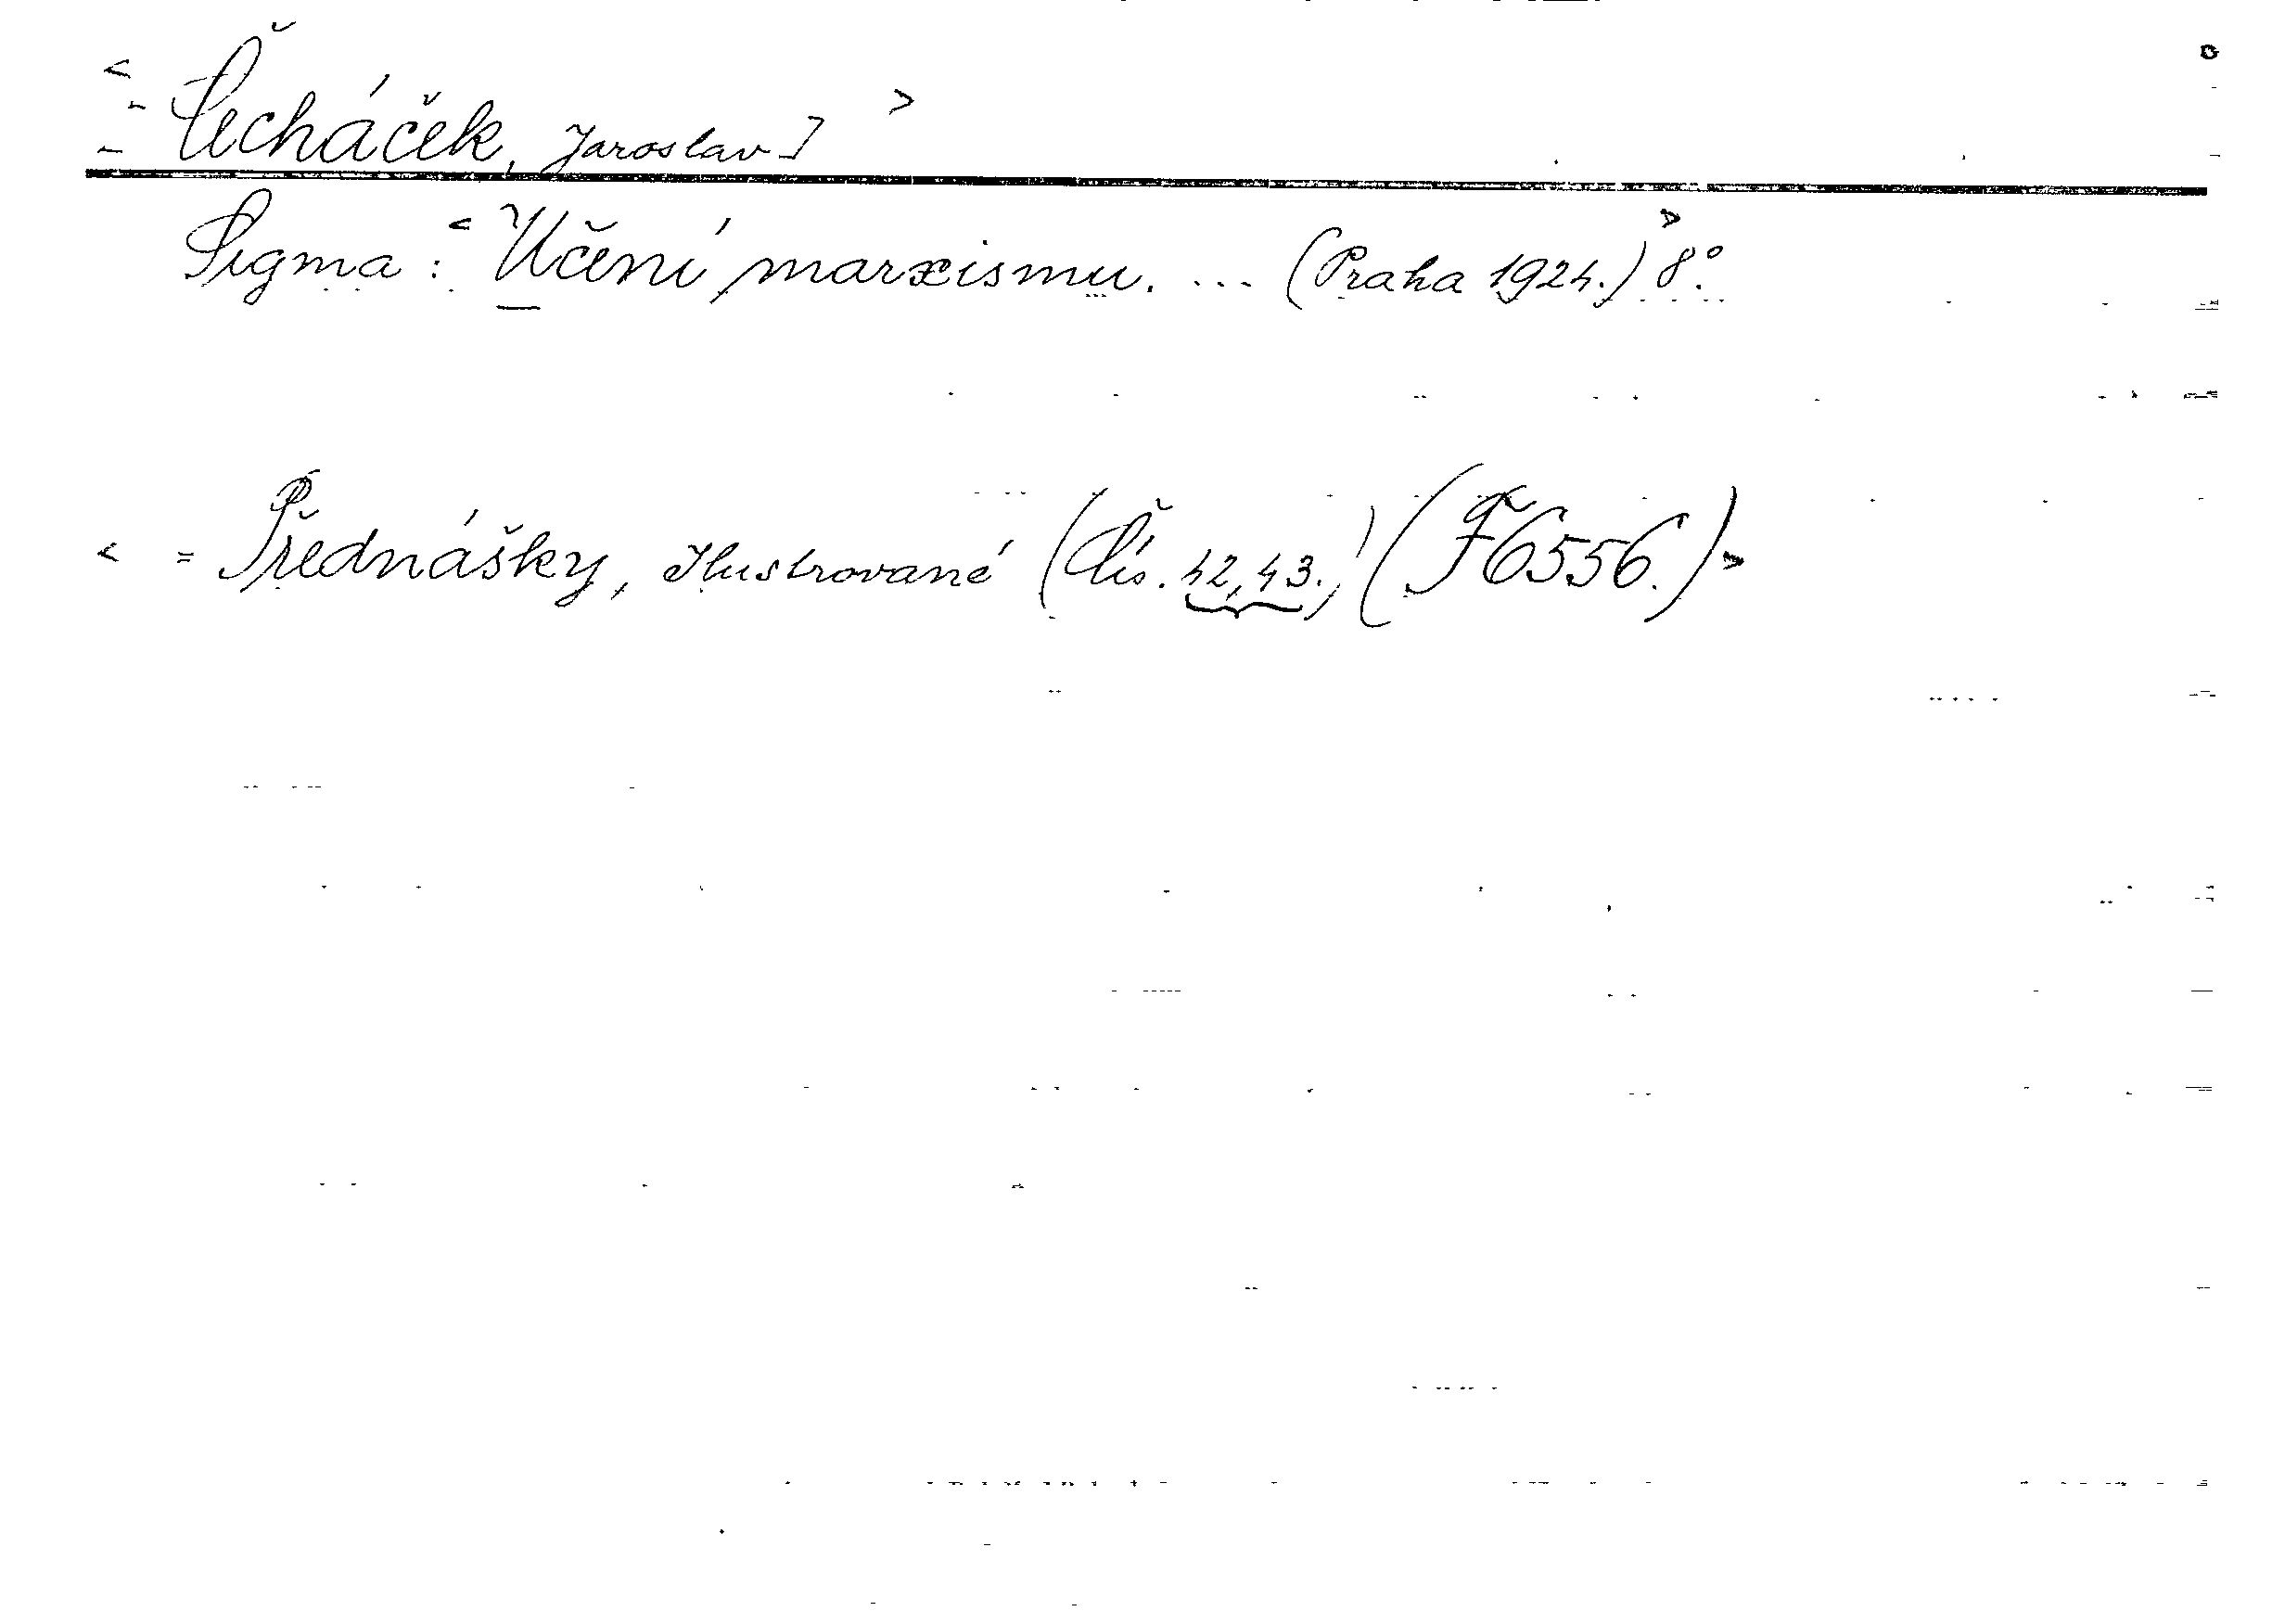 < = [Čecháček, Jaroslav] >
Sigma: < Učení marxismu. ... (Praha 1924.) > 8°.
< = Přednášky, Ilustrované (Čís. 42, 43.) (F6556.) >